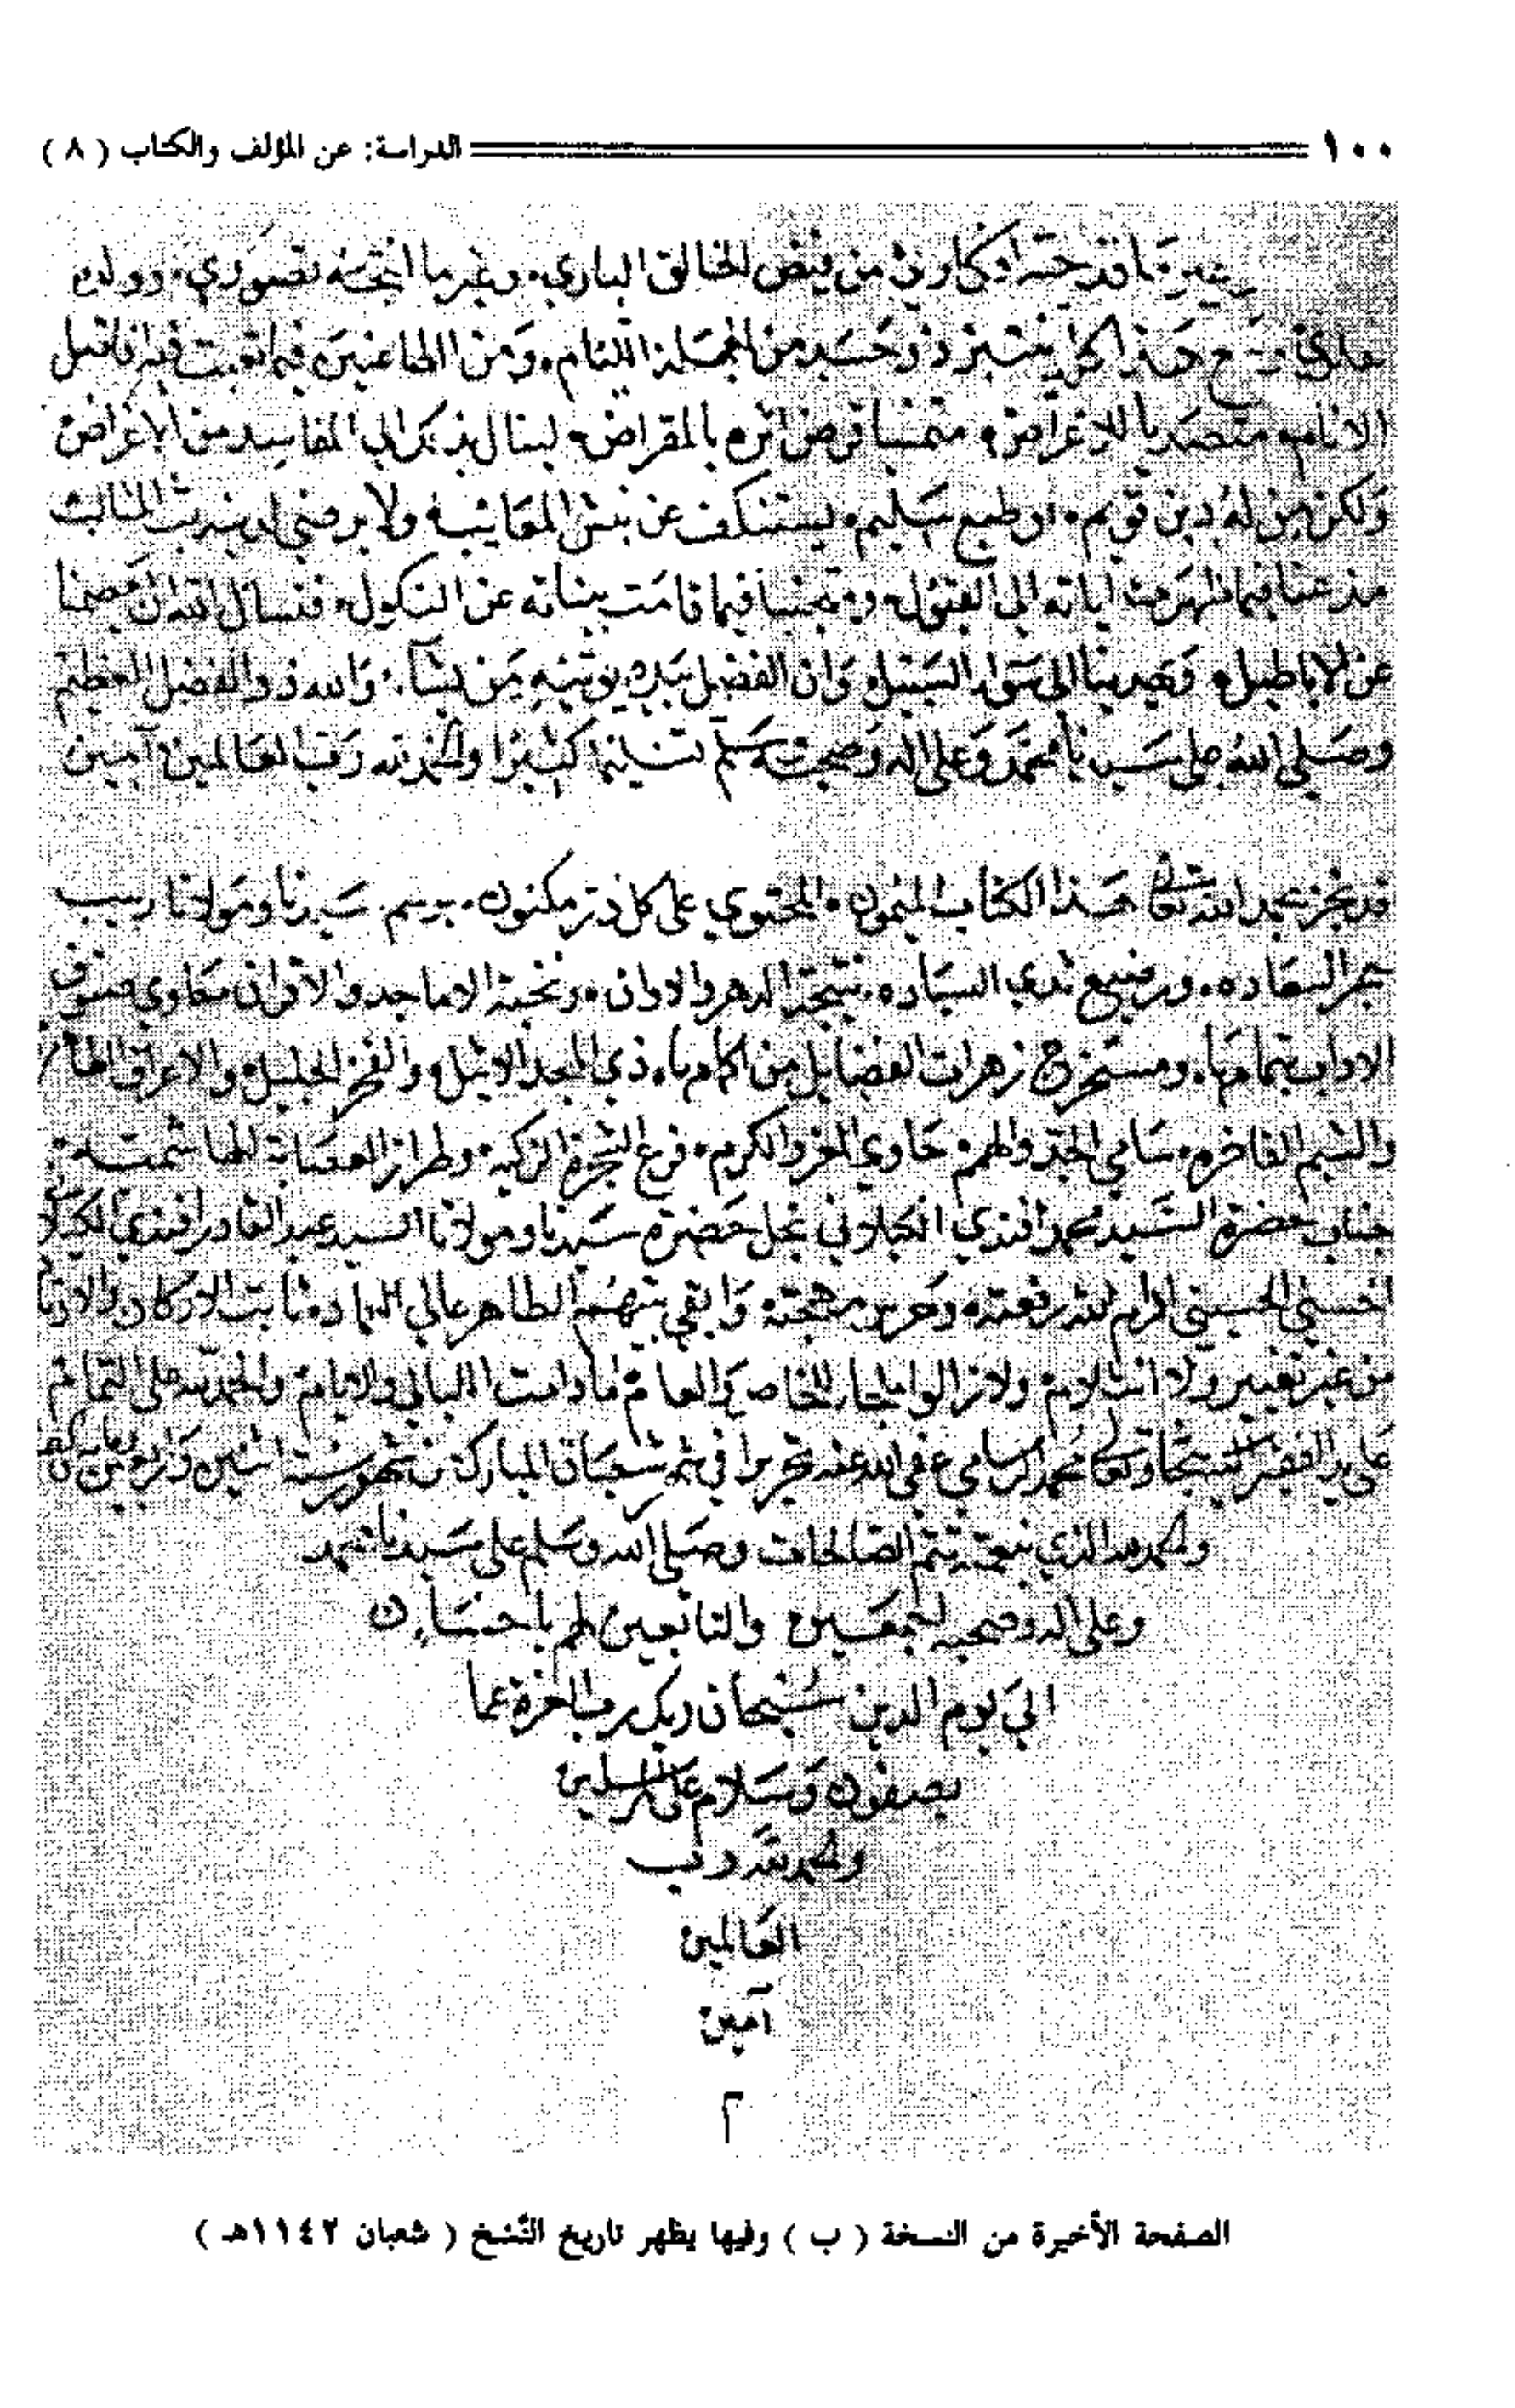 ١٠٠ الدراسة: عن المؤلف والكتاب ( ٨ )
من فيض الخالق الباري، وغير ما انتجته تصوري،
هذا ذو حسد من الجملة اللئام، ومن الطاعنين فيما تعبت فيه
الانام، متصديا للاغراض، متمنيا قرض اثره بالمقراض، لينال بذكر المفاسد من الاغراض
ولكن من له دين قويم، او طبع سليم، يستنكف عن نبش المعائب، ولا يرضى المثالب
فيما ظهرت اياته الى القبول، فيما قامت بيناته عن النكول، فنسال الله ان يعصمنا
عن الاباطيل، ويهدينا الى سواء السبيل، وان الفضل بيده يوتيه من يشاء، والله ذو الفضل العظيم
وصلى الله على سيدنا محمد وعلى اله وصحبه وسلم تسليما كثيرا والحمد لله رب العالمين آمين
قد نجز بحمد الله تعالى هذا الكتاب الميمون، المحتوي على كل در مكنون، برسم سيدنا ومولانا ربيب
حجر السعاده، ورضيع ثدي السياده، نتيجة الدهر والاوان، ونخبة الاماجد والاقران صنوف
الاداب بتمامها، ومستخرج زهرات الفضايل من اكمامها، ذي المجد الاثيل، والفخر الجليل، والاعراق الطاهره
والشيم الفاخره، سامي الجد والهمم، حاوي الفخر والكرم، فرع الشجرة الزكيه، وطراز العصابة الهاشمية
جناب حضرة السيد محمد افندي الكيلاني نجل حضرة سيدنا ومولانا السيد عبد القادر افندي الكيلاني
الحسني الحسيني ادام الله رفعته وحرس مهجته وابقى بيتهم الطاهر عالي العماد، ثابت الاركان والاوتاد
من غير تغيير ولا انثلام، ولا زالوا ملجا للخاص والعام، ما دامت الليالي والايام، والحمد لله على التمام تم
على يد الفقير محمد عفى الله عنه تحريرا في شعبان المبارك من شهور سنة اثنين واربعين
والحمد لله الذي بنعمته تتم الصالحات وصلى الله وسلم على سيدنا محمد
وعلى اله وصحبه اجمعين والتابعين لهم باحسان
الى يوم الدين سبحان ربك رب العزة عما
يصفون وسلام على المرسلين
والحمد لله رب
العالمين
آمين
م
الصفحة الأخيرة من النسخة ( ب ) وفيها يظهر تاريخ النَّسْخ ( شعبان ١١٤٢هـ )